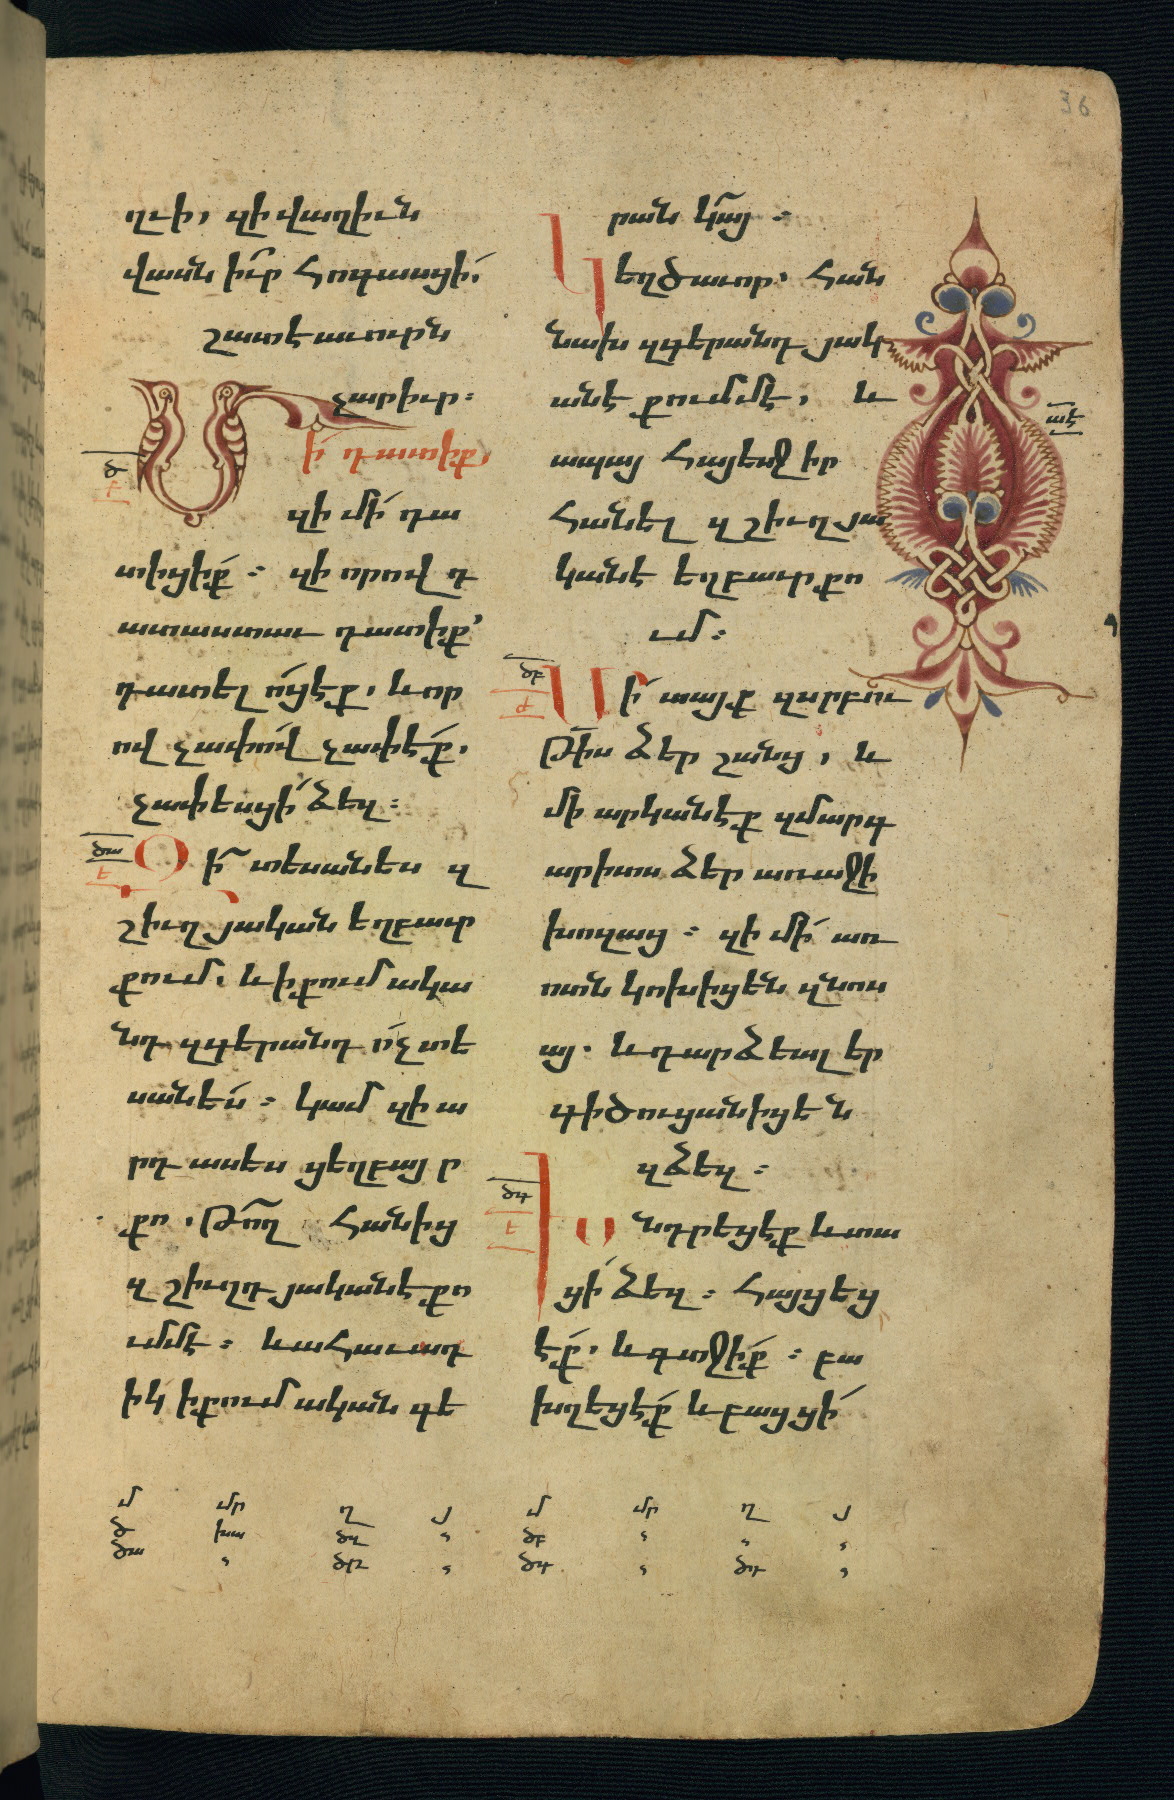 36
ղւի, զի վաղիւն
վասն իւր հոգասցի,
շատ է աւուրն
չարիւր։
Մի դատիք,
զի մի դա
տիցիք։ զի որով դ
ատաստաւ դատիք՝
դատել ո՛ցէք, և որ
ով չափով չափէք,
չափեսցի ձեզ։
Զի՞ տեսանես զ
շիւղ յական եղբաւր
քում, և ի քում ակա
նդ զգերանդ ո՛չ տե
սանես։ կամ զիա
րդ ասես ցեղբայր
քո, թո՛ղ հանից
զշիւղդ յականէ քո
ւմմէ։ և ահաւադ
իկ ի քում ական գե
րան կա՛յ։
Կեղծաւոր, հան
նախ զգերանդ յակ
անէ քումմէ, և
ապայ հայեսջիր
հանել զշիւղ յա
կանէ եղբաւր քո
ւմ։
Մի տայք զսրբու
թիս ձեր շանց, և
մի արկանէք զմարգ
արիտս ձեր առաջի
խոզաց։ զի մի առ
ոտն կոխիցեն զնոս
ա. և դարձեալ եր
գիծուցանիցեն
զձեզ։
Խնդրեցէք և տա
ցի ձեզ։ հայցեց
էք, և գտջիք։ բա
խղեցէք և բացցի
ծ
է
ծա
է
ծբ
ժ
ծգ
է
աէ
մ մր ղ յ մ մր ղ յ
ծ խա ծզ , ծբ , , ,
ծա , ծը , ծգ , ծդ ,